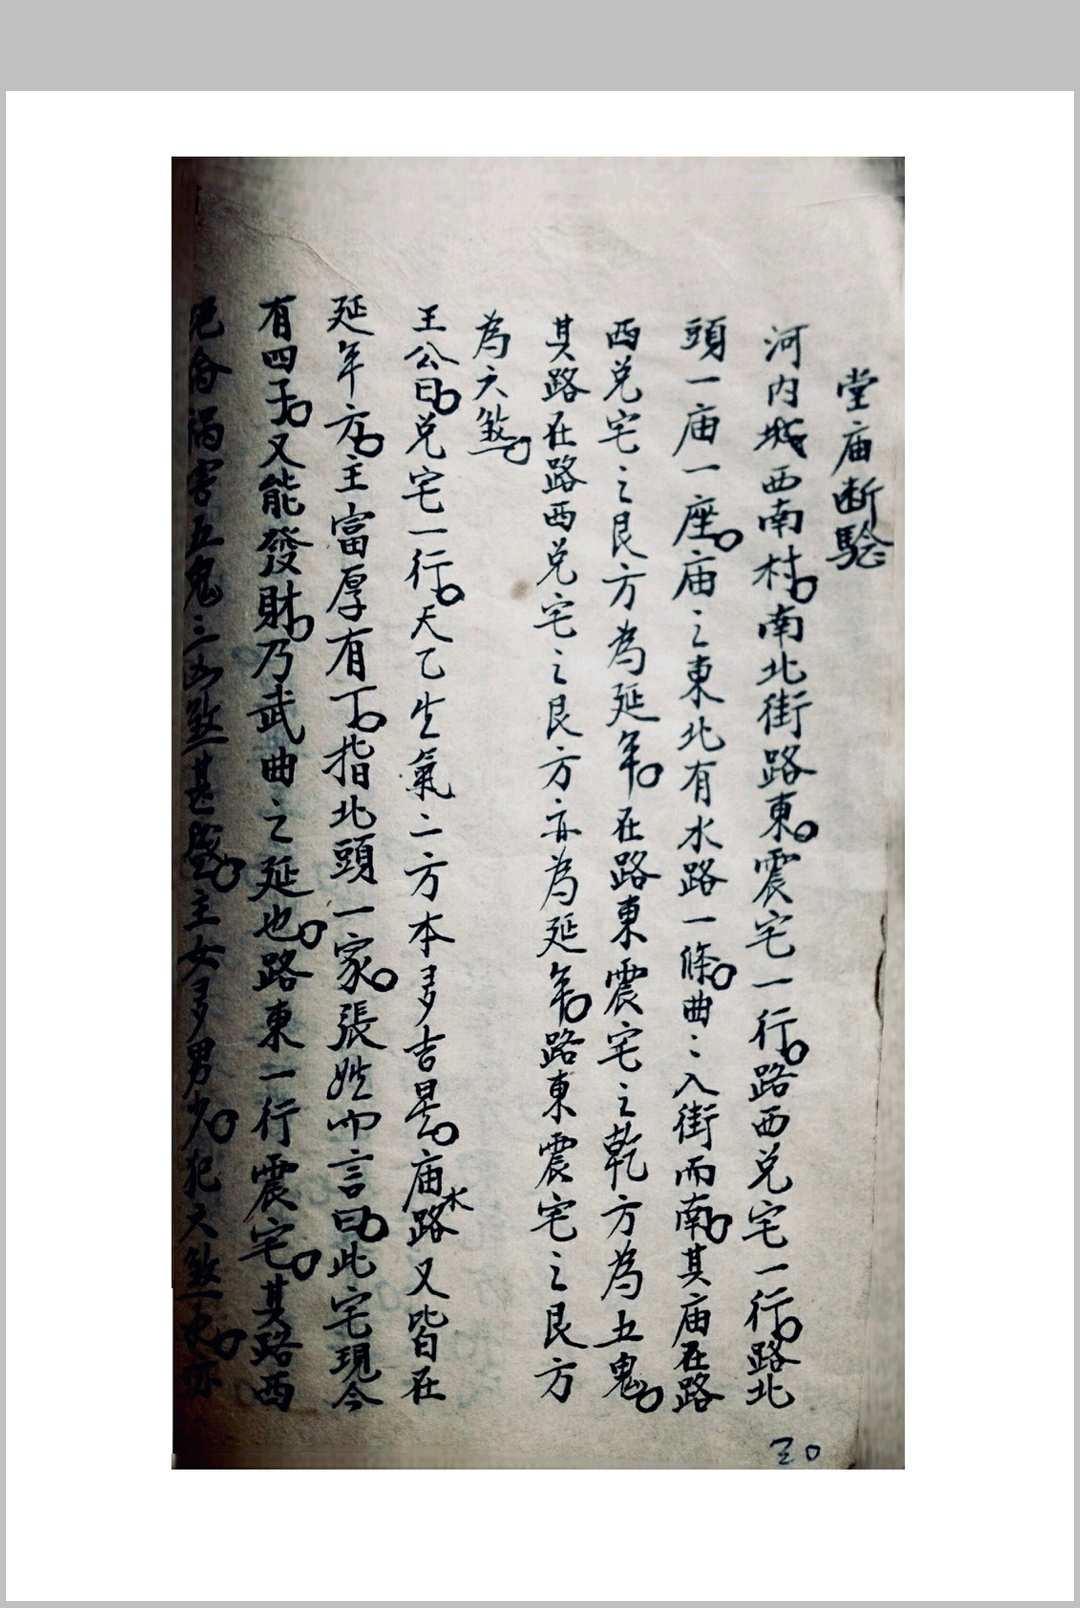 堂庙断騐
河内城西南村。南北街路東。震宅一行。路西兑宅一行。路北
頭一庙一座。庙之東北有水路一條。曲〻入街而南。其庙在路
西兑宅之艮方為延年。在路東震宅之乾方為五鬼。
其路在路西兑宅之艮方亦為延年。路東震宅之艮方
為六煞。
王公曰。兑宅一行。天乙生氣二方本多吉星。庙水路又皆在
延年方。主富厚有丁。指北頭一家。張姓而言曰。此宅現今
有四子。又能發財。乃武曲之延也。路東一行震宅。其路西
絶命禍害五鬼三凶煞甚盛。主女多男少。犯六煞
30